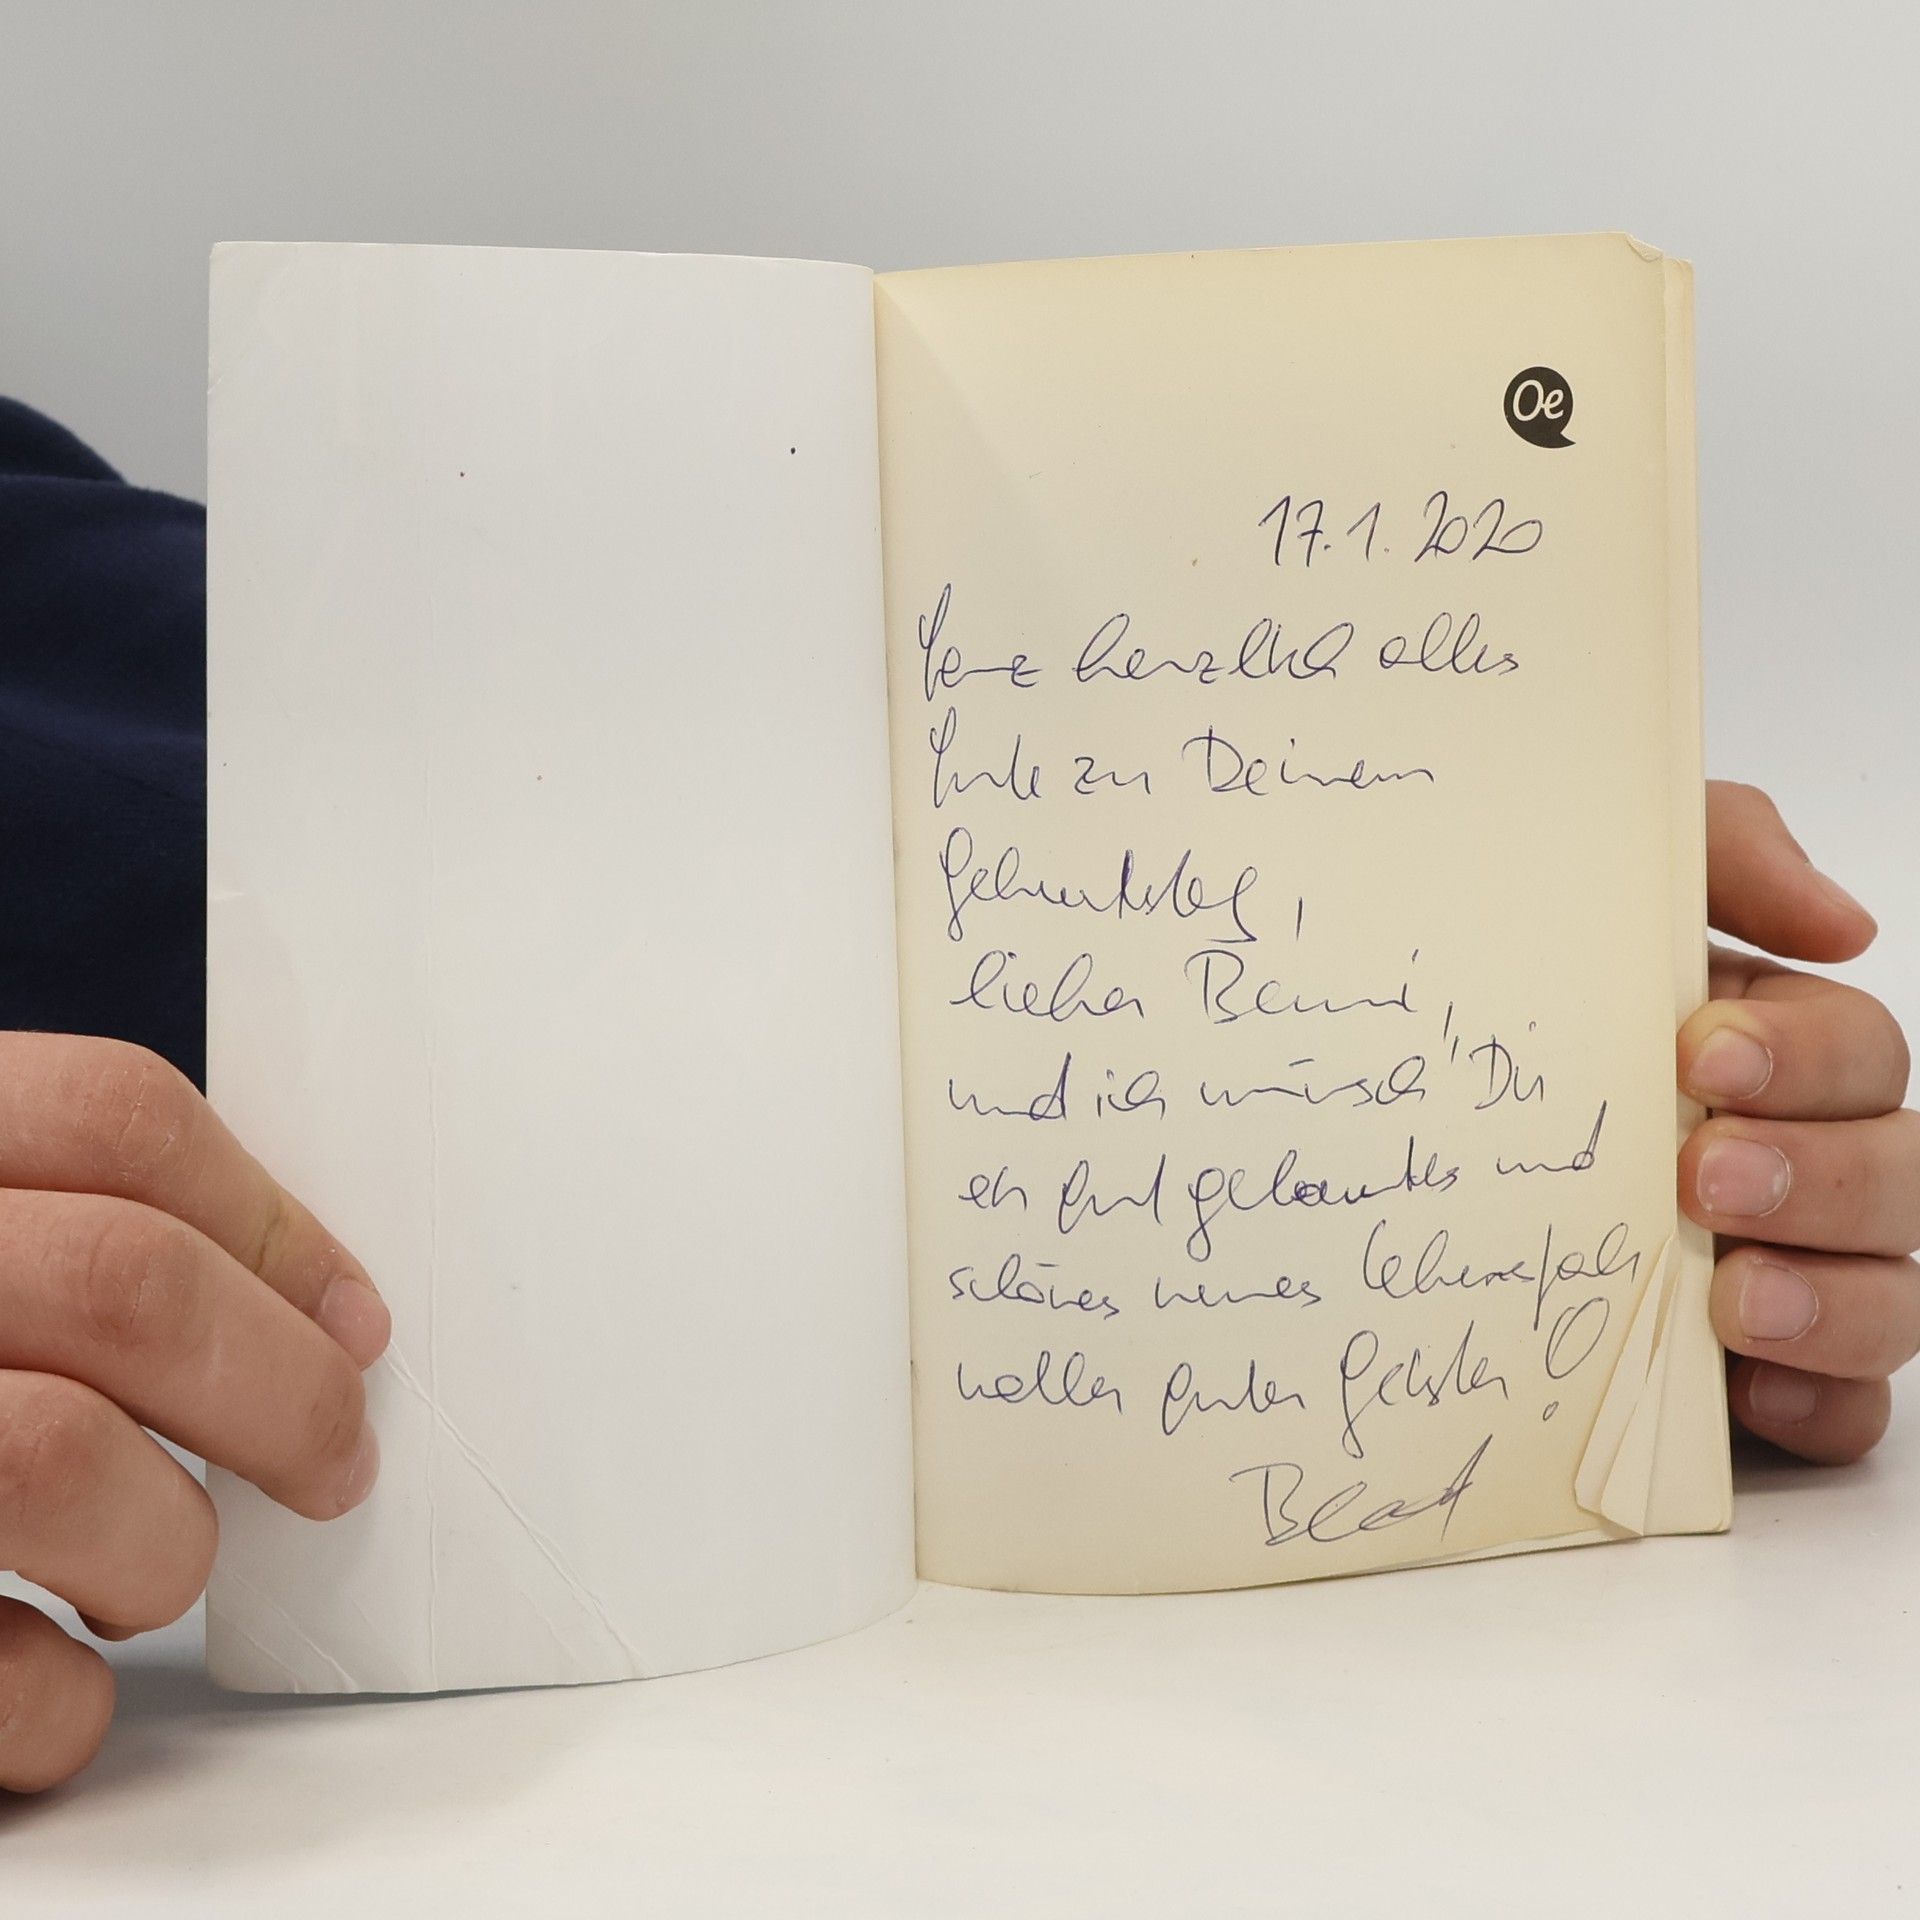 Oe
17.1.2020
Ganz herzlich alles
Gute zu Deinem
Geburtstag,
lieber Benni,
und ich wünsch' Dir
ein gut gelauntes und
schönes neues Lebensjahr
voller guter Geister!
Beat